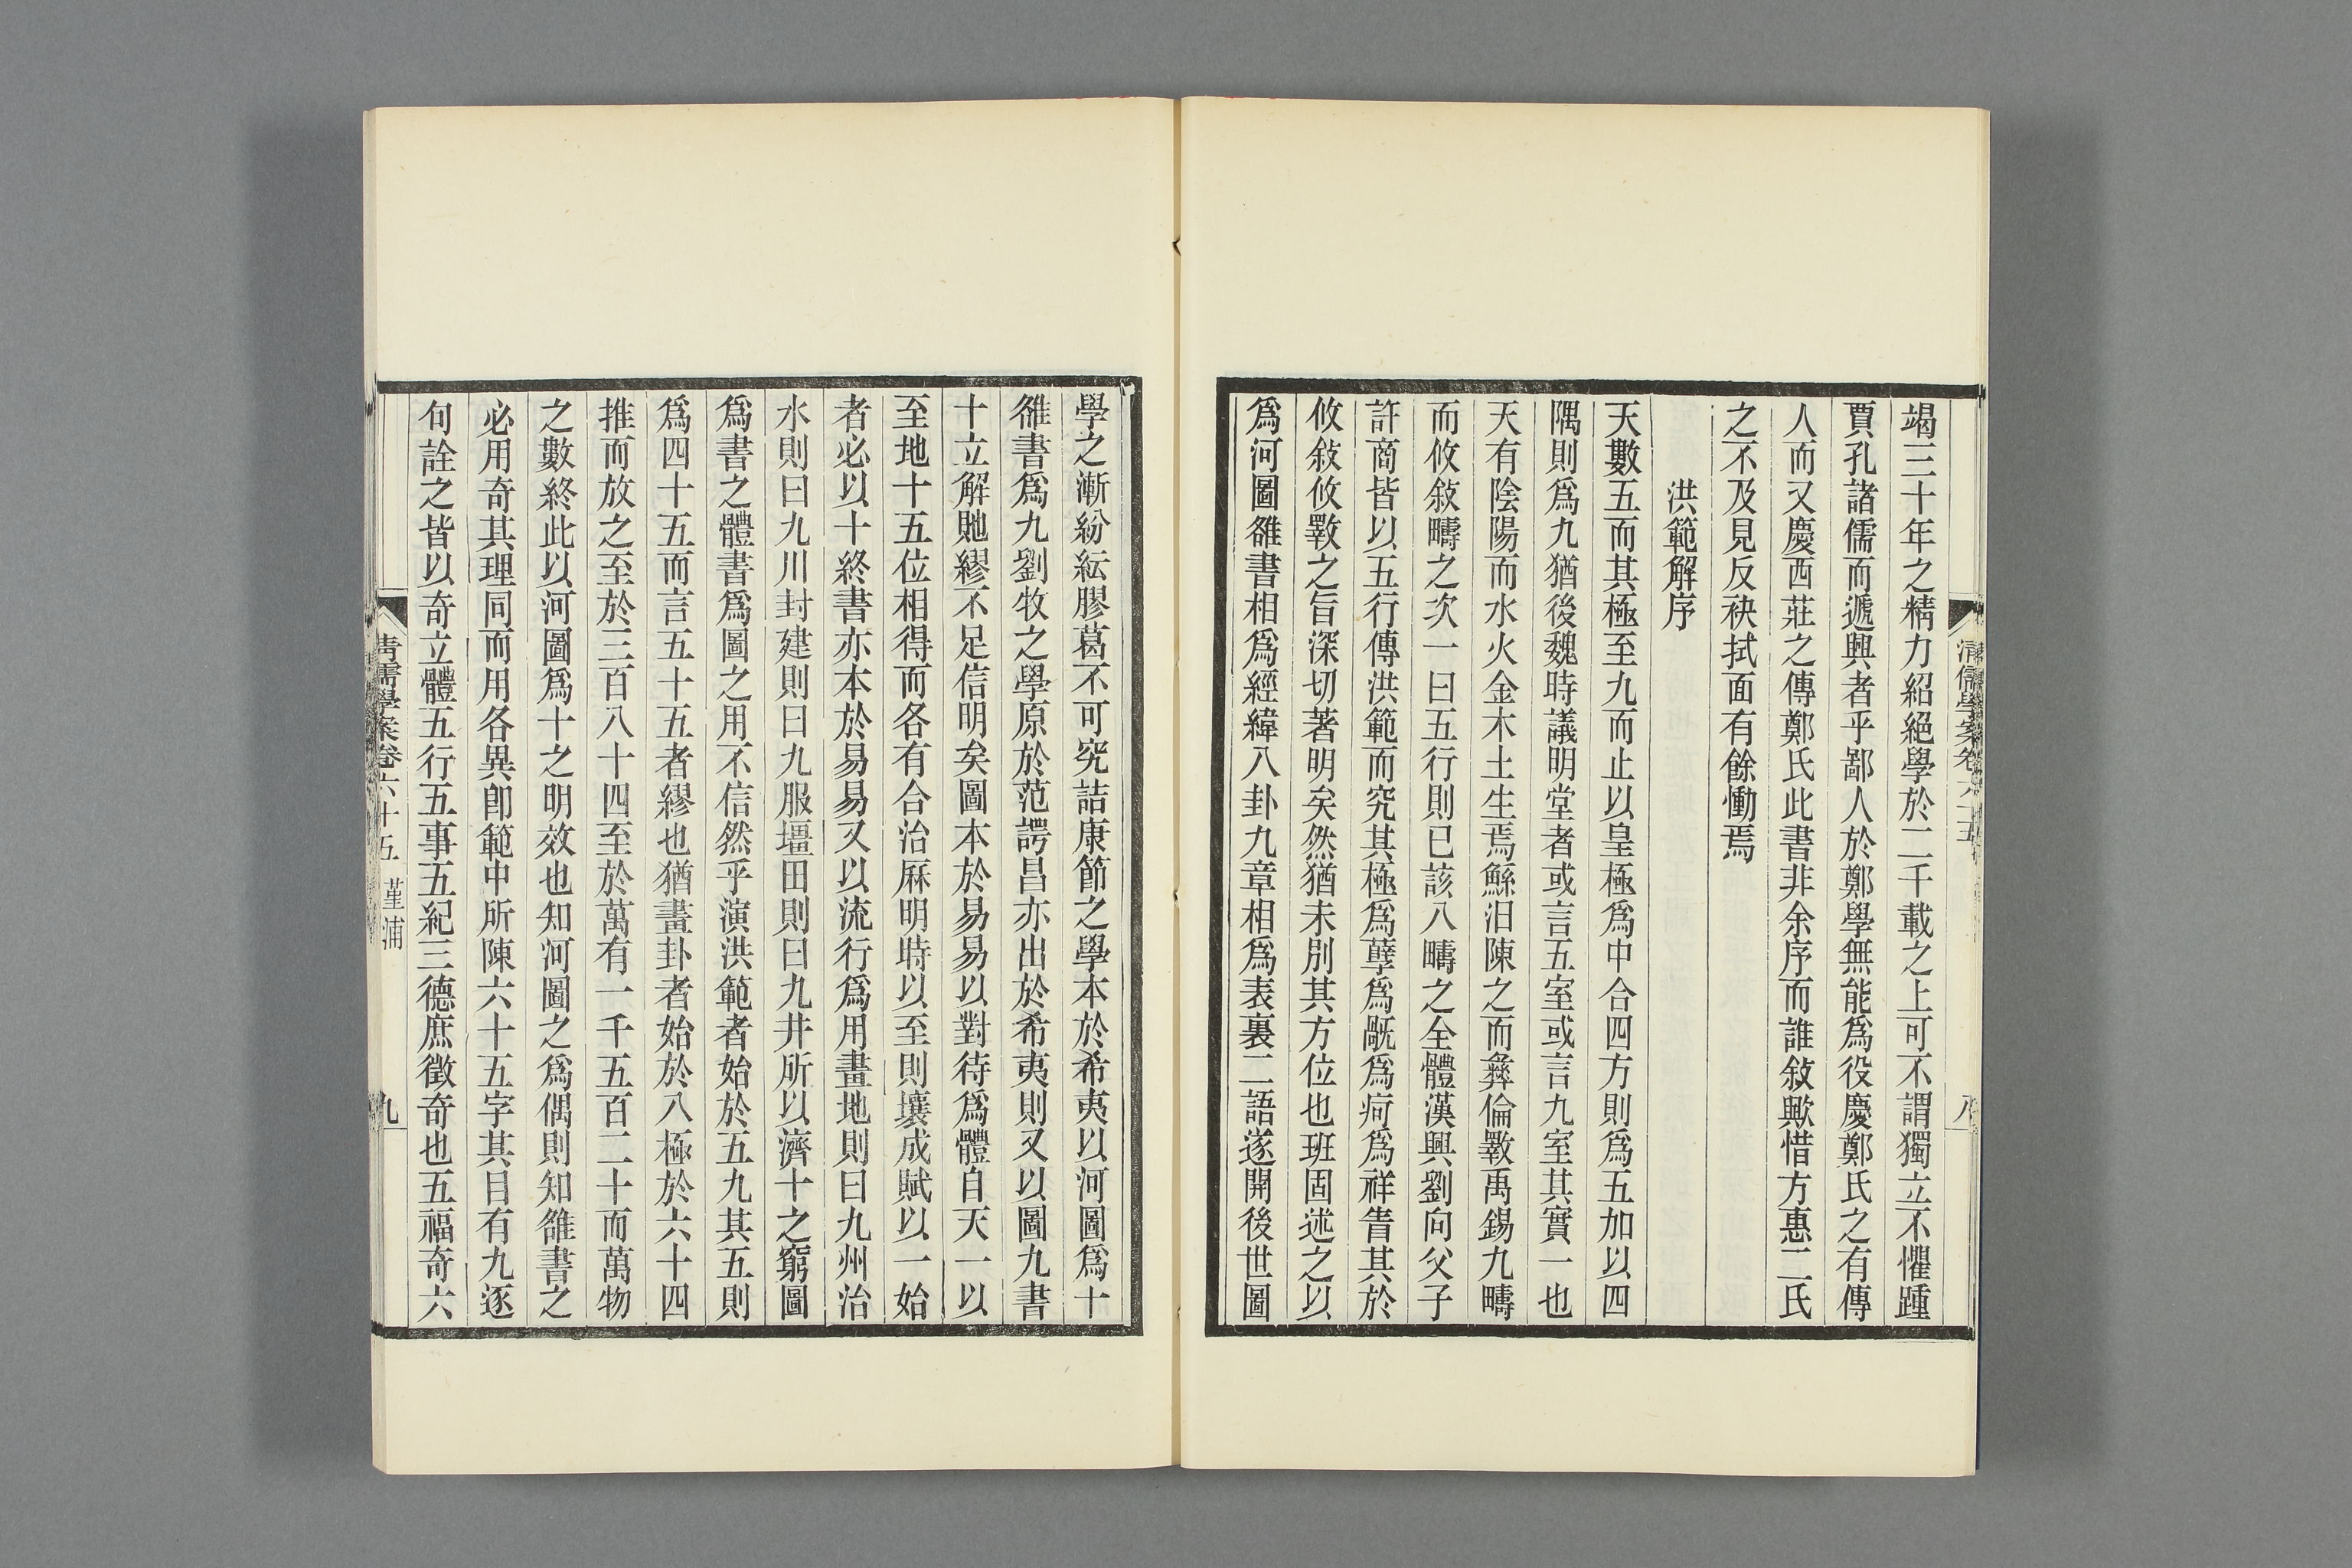 清儒學案卷六十五
八
竭三十年之精力紹絕學於二千載之上可不謂獨立不懼踵
賈孔諸儒而遞興者乎鄙人於鄭學無能爲役慶鄭氏之有傳
人而又慶西莊之傳鄭氏此書非余序而誰敍歟惜方惠二氏
之不及見反袂拭面有餘慟焉
洪範解序
天數五而其極至九而止以皇極爲中合四方則爲五加以四
隅則爲九猶後魏時議明堂者或言五室或言九室其實一也
天有陰陽而水火金木土生焉鯀汨陳之而彝倫斁禹錫九疇
而攸敍疇之次一曰五行則已該八疇之全體漢興劉向父子
許商皆以五行傳洪範而究其極爲孽爲旤爲痾爲祥眚其於
攸敍攸斁之旨深切著明矣然猶未別其方位也班固述之以
爲河圖雒書相爲經緯八卦九章相爲表裏二語遂開後世圖
學之漸紛紜膠葛不可究詰康節之學本於希夷以河圖爲十
雒書爲九劉牧之學原於范諤昌亦出於希夷則又以圖九書
十立解貤繆不足信明矣圖本於易易以對待爲體自天一以
至地十五位相得而各有合治厤明時以至則壤成賦以一始
者必以十終書亦本於易易又以流行爲用畫地則曰九州治
水則曰九川封建則曰九服壃田則曰九井所以濟十之窮圖
爲書之體書爲圖之用不信然乎演洪範者始於五九其五則
爲四十五而言五十五者繆也猶畫卦者始於八極於六十四
推而放之至於三百八十四至於萬有一千五百二十而萬物
之數終此以河圖爲十之明效也知河圖之爲偶則知雒書之
必用奇其理同而用各異卽範中所陳六十五字其目有九逐
句詮之皆以奇立體五行五事五紀三德庶徵奇也五福奇六
清儒學案卷六十五 堇浦
九